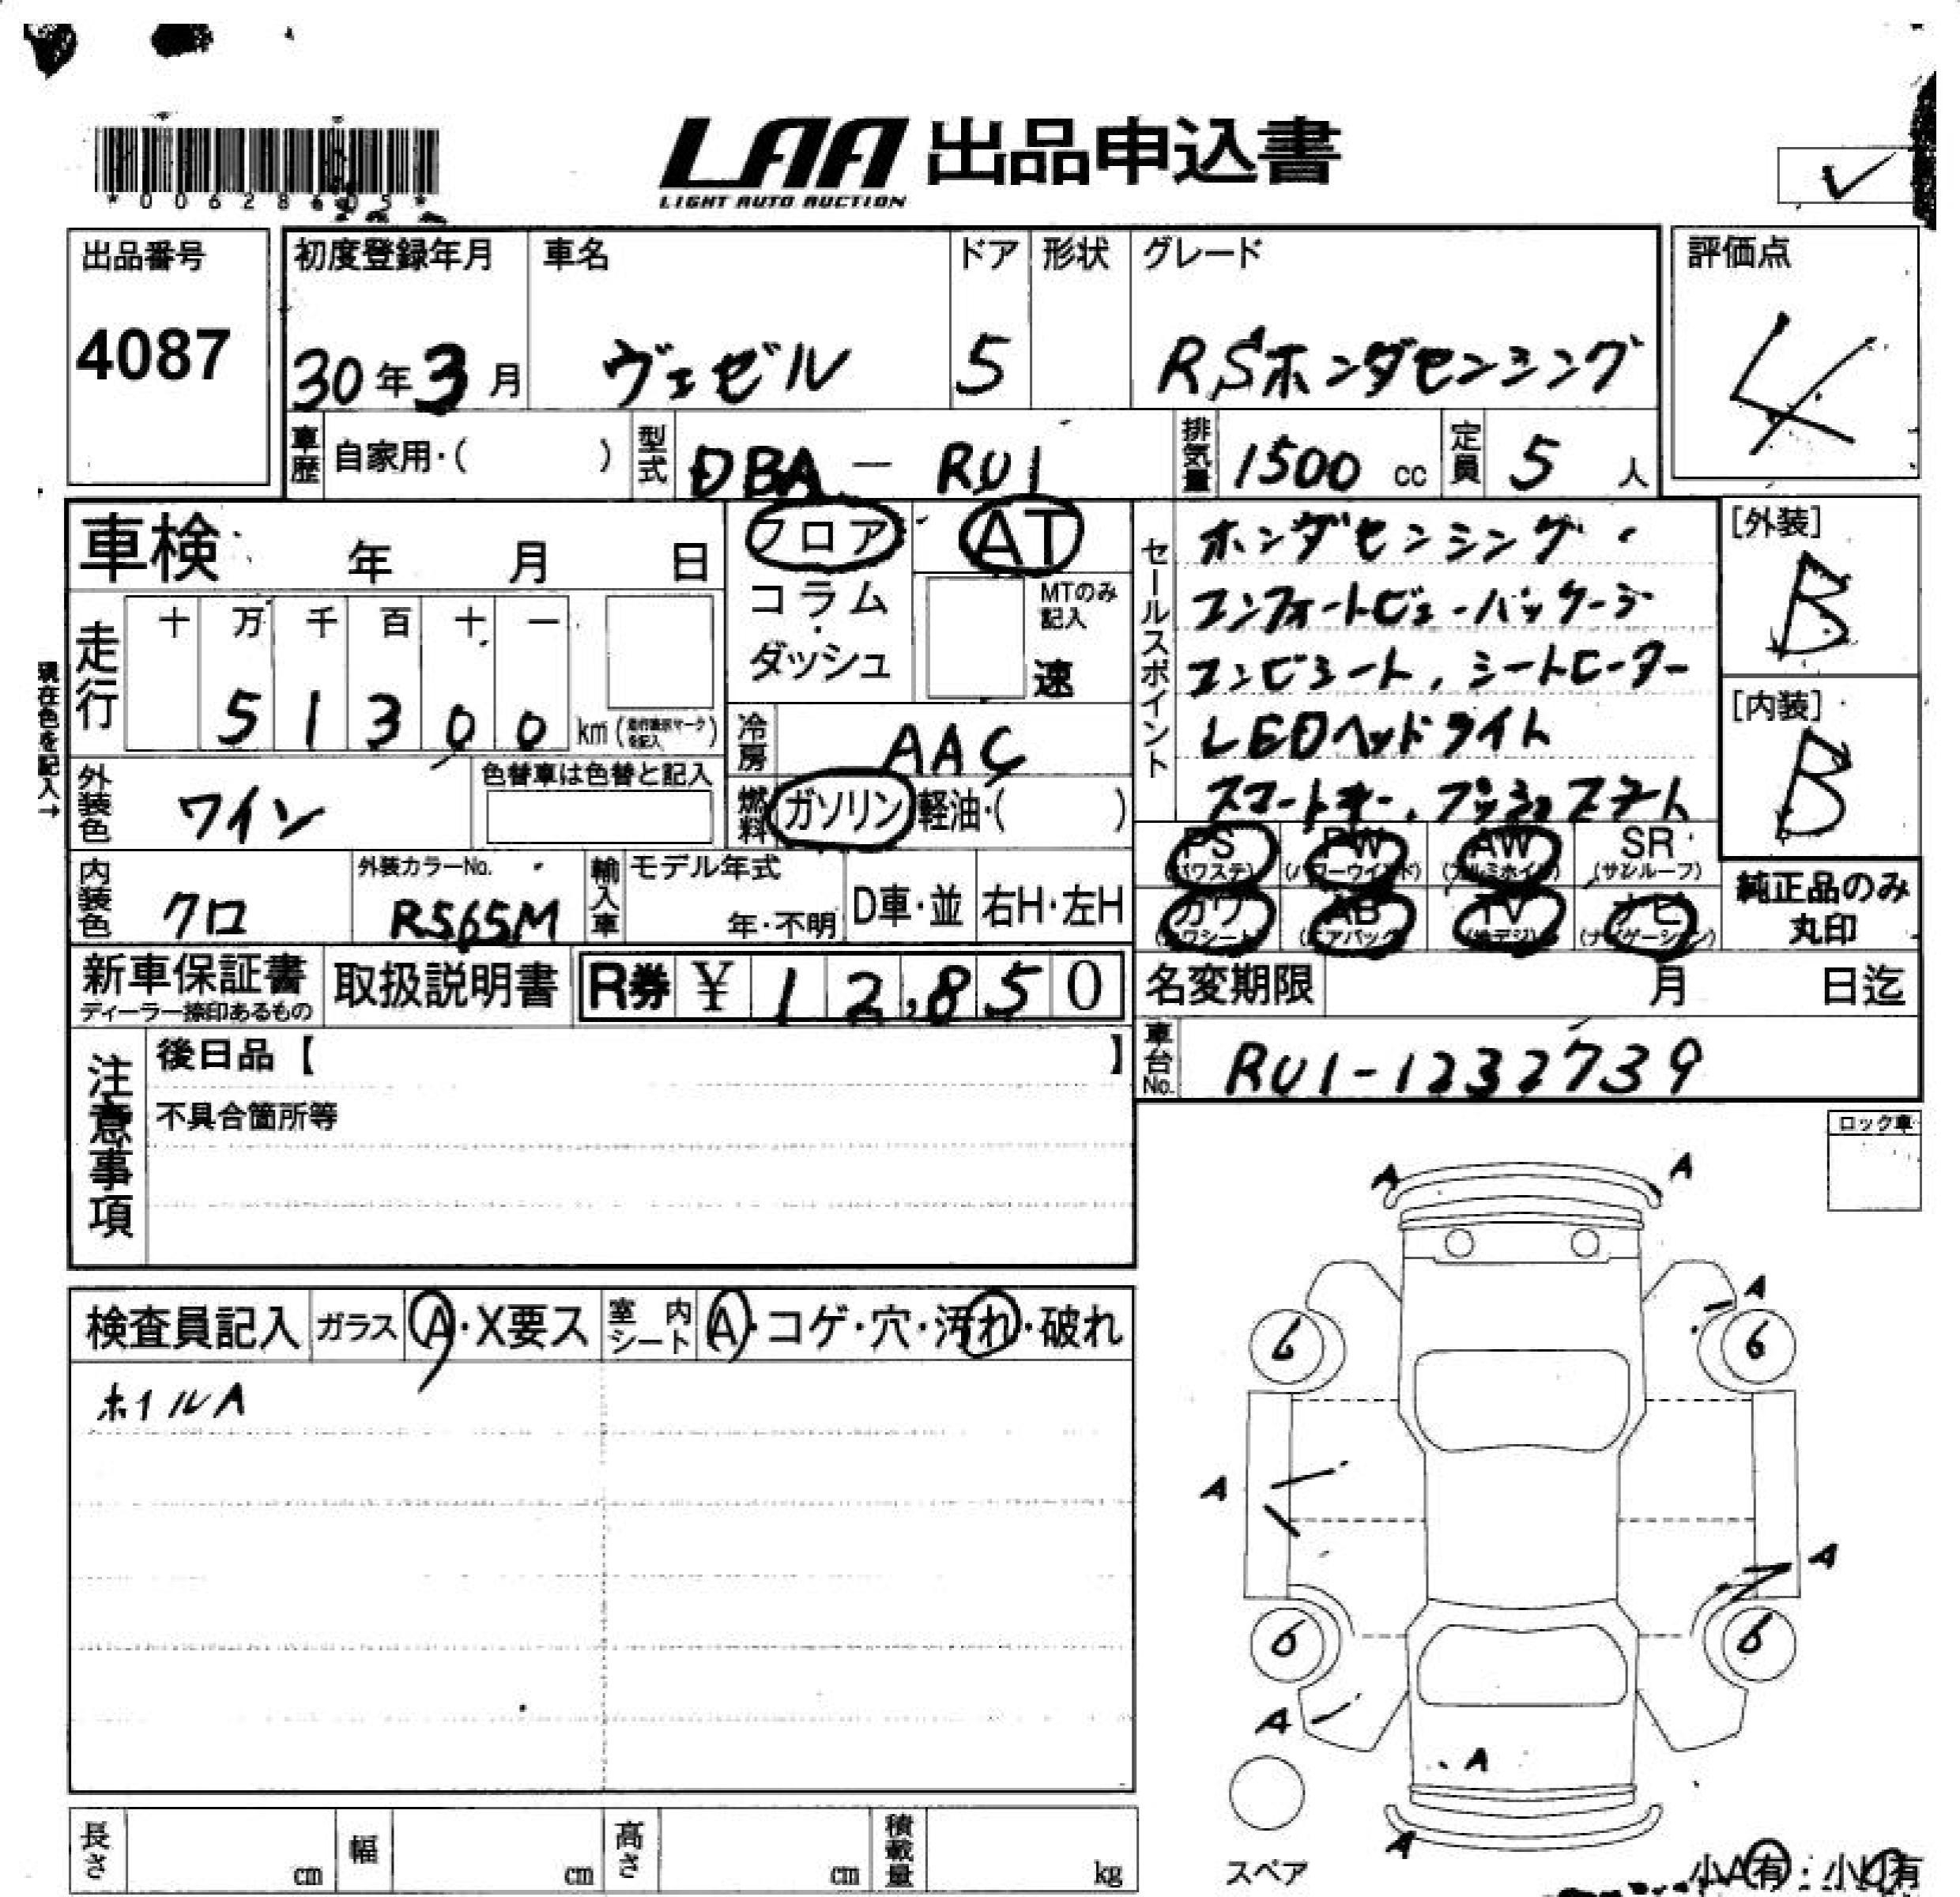 LAA 出品申込書
LIGHT AUTO AUCTION
出品番号
4087
初度登録年月
30年3月
車名
ヴェゼル
ドア
5
形状
グレード
RSホンダセンシング
評価点
4
車歴 自家用・( )
型式 DBA-RU1
排気量 1500 cc
定員 5 人
車検 年 月 日
フロア
コラム
・
ダッシュ
AT
MTのみ
記入
速
セールスポイント
ホンダセンシング
コンフォートビューパッケージ
コンビシート, シートヒーター
LEDヘッドライト
スマートキー, プッシュスタート
[外装]
B
[内装]
B
現在色を記入→
走行
十 万 千 百 十 一
5 1 3 0 0 km
冷房 AAC
外装色 ワイン
色替車は色替と記入
燃料 ガソリン 軽油・( )
PS (パワステ) PW (パワーウインド) AW (アルミホイル) SR (サンルーフ)
カワ (カワシート) AB (エアバック) TV (地デジ) ナビ (ナビゲーション)
純正品のみ
丸印
内装色 クロ
外装カラーNo.
R565M
輸入車
モデル年式
年・不明
D車・並
右H・左H
新車保証書
ディーラー捺印あるもの
取扱説明書
R券 ¥ 12,850
名変期限 月 日迄
車台No. RU1-1232739
注意事項
後日品【 】
不具合箇所等
ロック車
検査員記入 ガラス A・X要ス 室内シート A・コゲ・穴・汚れ・破れ
ホイルA
A A
A
6 6
A
A
6 6
A
A
A
スペア
小A有・小U有
長さ cm 幅 cm 高さ cm 積載量 kg